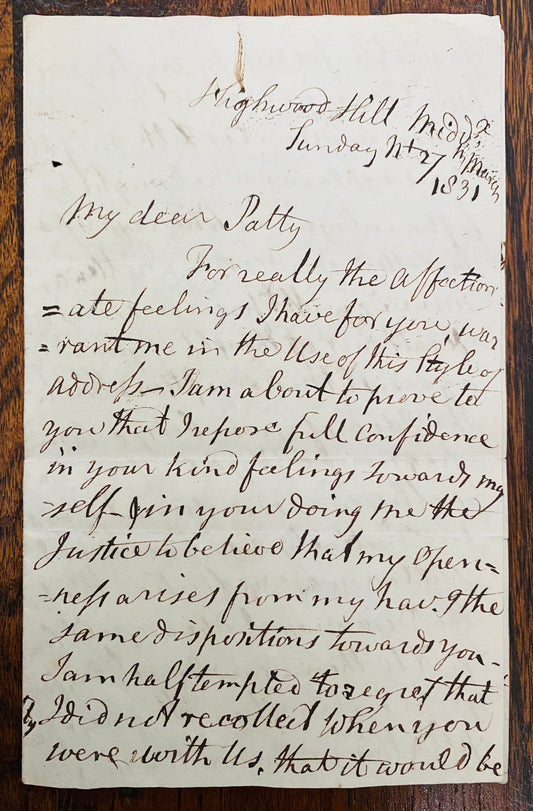 Highwood Hill Middx
Sunday Nt 27th March
1831
My dear Patty
For really the affection
=ate feelings I have for you, war
=rant me in the Use of this Style of
address - I am about to prove to
you that I repose full confidence
in your kind feelings towards my
=self - & in your doing me the
Justice to believe that my Open=
=ness arises from my hav.g the
same dispositions towards you -
I am half tempted to regret that
I did not recollect when you
were with Us, that it would be